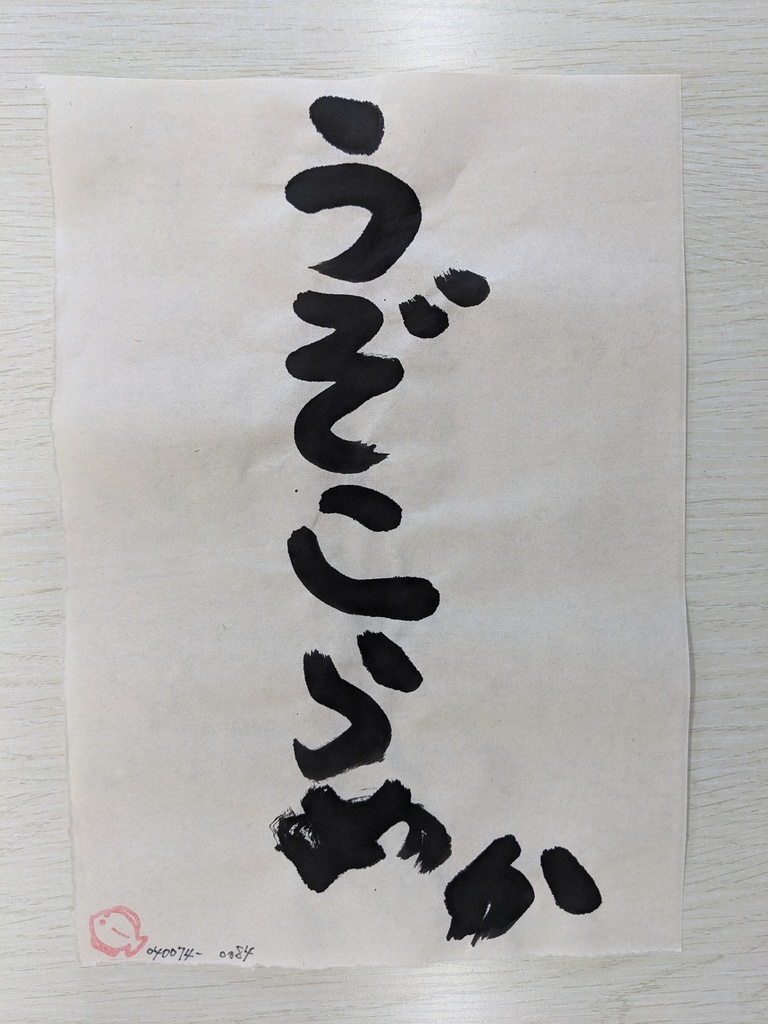 うぞこらめか
040074- 0084